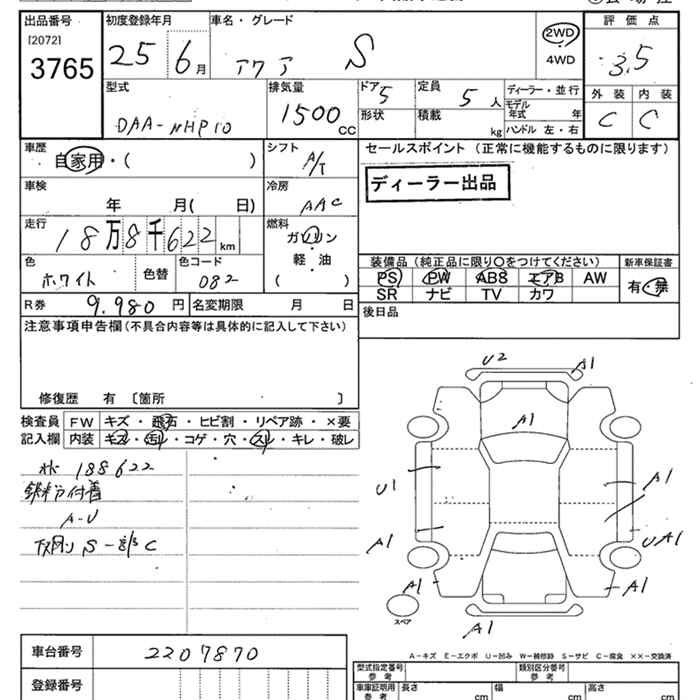 出品番号 初度登録年月 車名・グレード 評価点
[2072] 3765 25 年 6月 アクア S 2WD 4WD 3.5
外装 内装
C C
型式 排気量 ドア 定員 ディーラー・並行
DAA-NHP10 1500cc 5 5人 モデル年式 年
形状 積載 kg ハンドル 左・右
車歴 シフト セールスポイント (正常に機能するものに限ります)
自家用・( ) A/T ディーラー出品
車検 冷房
年 月( 日) AAC
走行 燃料
18万8千622km ガソリン
軽・油
( )
色 色替 色コード
ホワイト 082
装備品 (純正品に限り○をつけてください) 新車保証書
PS PW ABS エアB AW 有・無
SR ナビ TV カワ
R券 9.980円 名変期限 月 日 後日品
注意事項申告欄 (不具合内容等は具体的に記入して下さい)
修復歴 有 〔箇所 〕
検査員 FW キズ・飛石・ヒビ割・リペア跡・×要
記入欄 内装 キズ・汚れ・コゲ・穴・スレ・キレ・破レ
188622
付着
A-U
S-
C
U2 A1
A1
U1 A1
A1 UA1
A1 A1
スペア
A1
A-キズ E-エクボ U-凹み W-補修跡 S-サビ C-腐食 ××-交換済
車台番号 2207870
型式指定番号 参考 類別区分番号 参考
登録番号
車庫証明用 参考 長さ cm 幅 cm 高さ cm